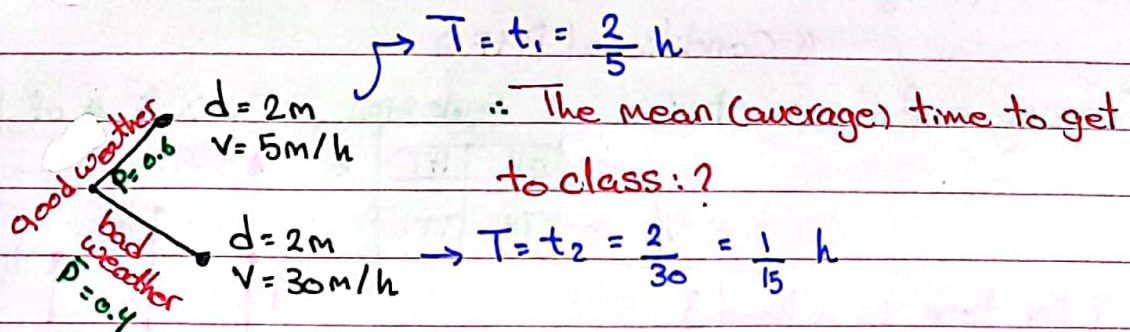 T = t₁ = 2/5 h
good weather
P = 0.6
d = 2m
V = 5m/h
∴ The mean (average) time to get
to class : ?
bad
weather
P̄ = 0.4
d = 2m
V = 30m/h
→ T = t₂ = 2/30 = 1/15 h